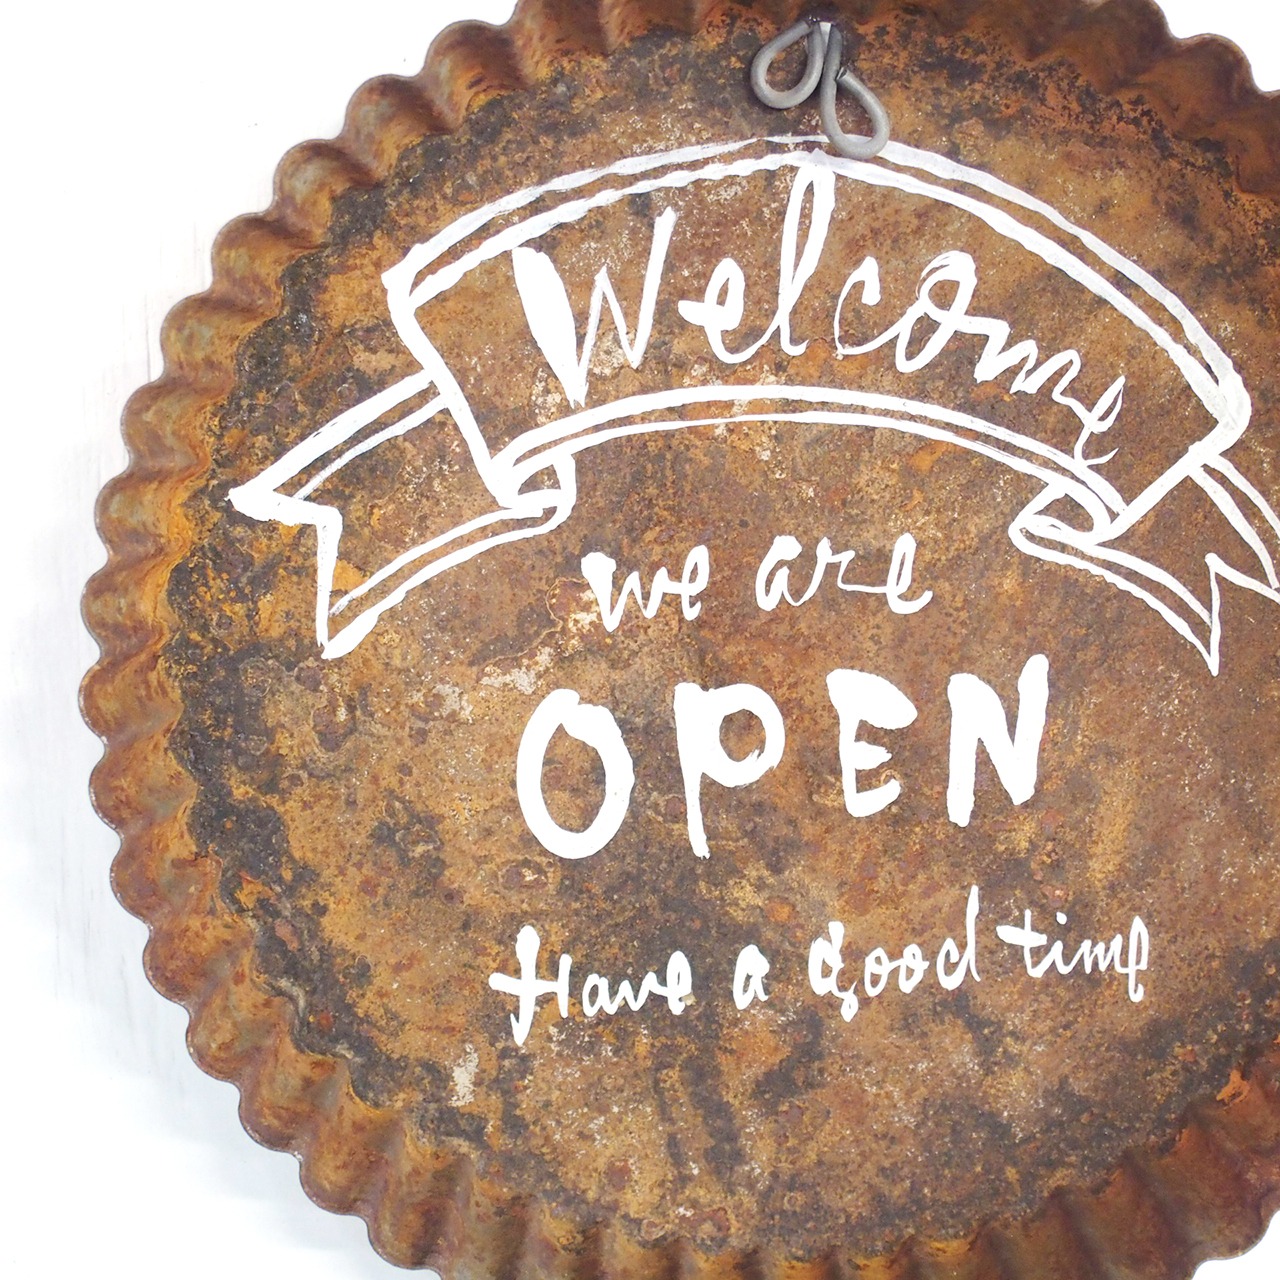 Welcome
we are
OPEN
Have a Good time